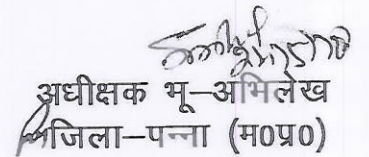 अधीक्षक भू–अभिलेख
जिला–पन्ना (म0प्र0)